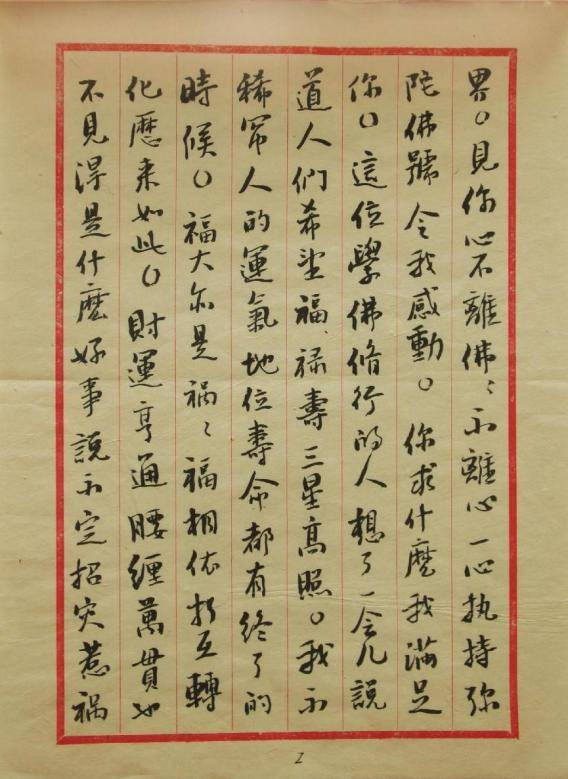 界。見你心不離佛〻不離心一心执持弥
陀佛號令我感動。你求什麼我满足
你。這位學佛脩行的人想了一会儿説
道人們希望福、禄壽三星高照。我不
稀罕人的運氣地位壽命都有终了的
時候。福大亦是祸〻福相依相互轉
化歷来如此。財運亨通腰缠萬貫也
不見得是什麼好事説不定招灾惹祸
2